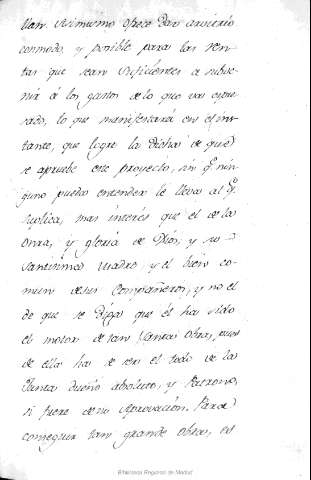 ilan Asimismo ofrece dar arvitrio
comodo, y posible para las ren-
tas que sean suficientes a subve-
nir á los gastos de lo que vas expre-
sado, lo que manifestará en el ins-
tante, que logre la Dicha de que
se apruebe este proyecto, sin q.e nin-
guno pueda entender le lleva al q.e
suplica, mas interés que el de la
onrra, y gloria de Dios, y su
Santissima Madre, y el bien co-
mun de sus Compañeros, y no el
de que se diga que él ha sido
el motor de tan Santa Obra, pues
de ella ha de ser el todo de la
Junta dueño absoluto, y Patrono,
si fuere de su Aprovación. Para
conseguir tam grande Obra, es
Biblioteca Regional de Madrid